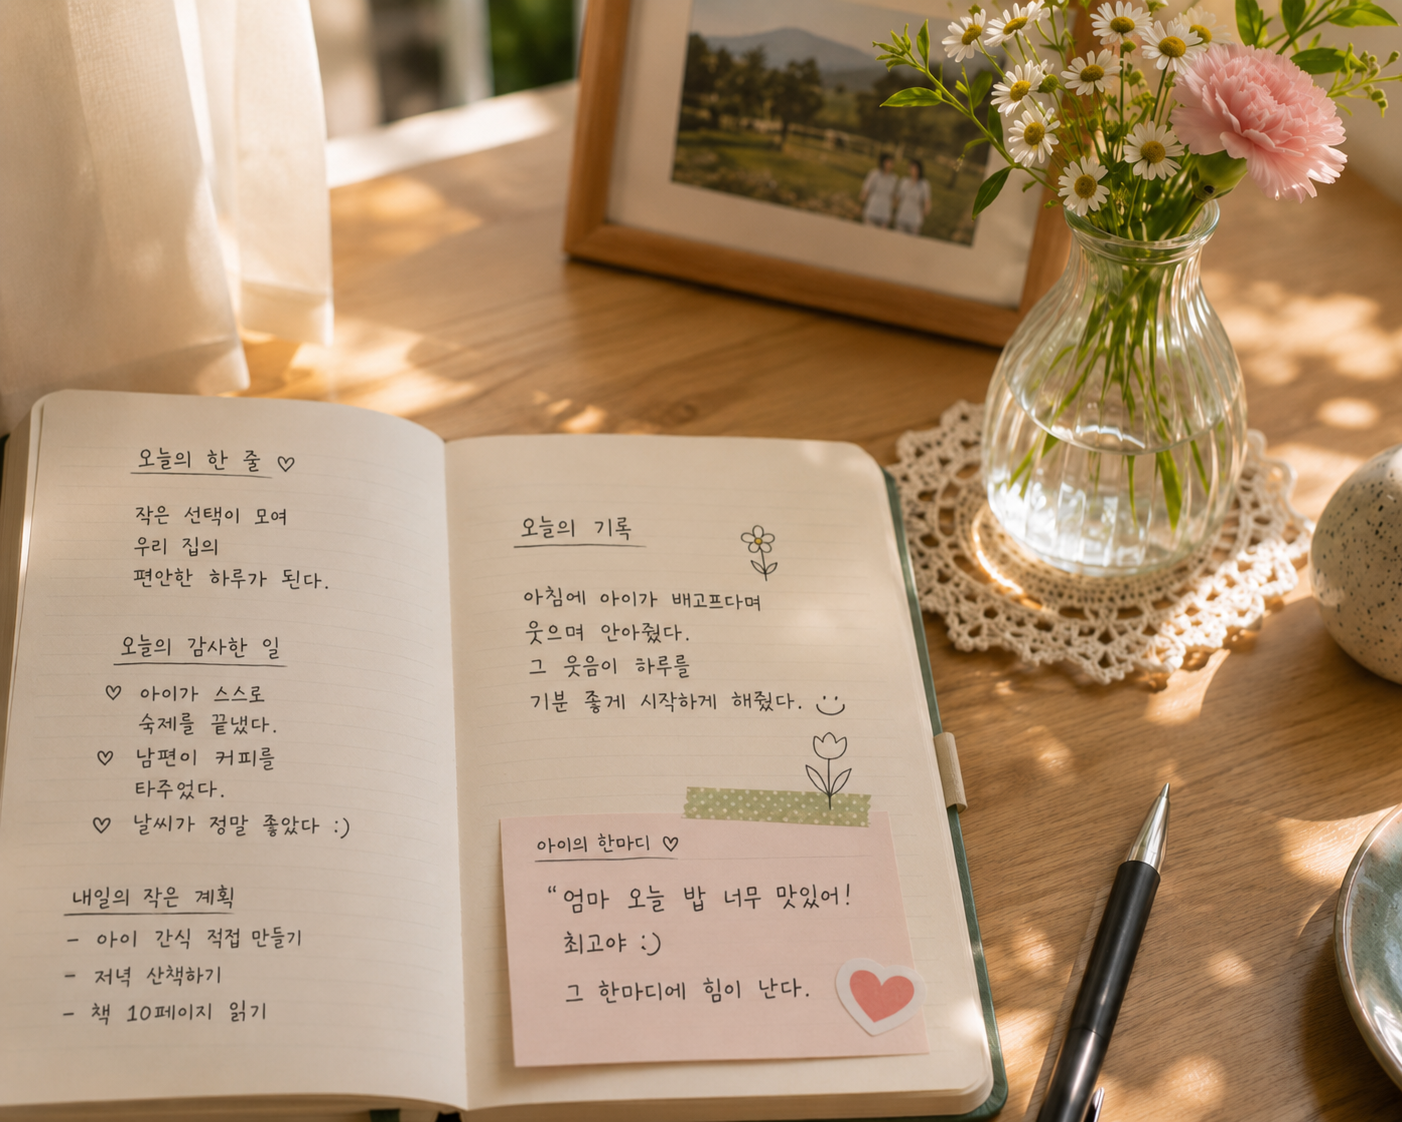 오늘의 한 줄 ♡
작은 선택이 모여
우리 집의
편안한 하루가 된다.
오늘의 감사한 일
♡ 아이가 스스로
숙제를 끝냈다.
♡ 남편이 커피를
타주었다.
♡ 날씨가 정말 좋았다 :)
내일의 작은 계획
- 아이 간식 직접 만들기
- 저녁 산책하기
- 책 10페이지 읽기
오늘의 기록
아침에 아이가 배고프다며
웃으며 안아줬다.
그 웃음이 하루를
기분 좋게 시작하게 해줬다.
아이의 한마디 ♡
“엄마 오늘 밥 너무 맛있어!
최고야 :)
그 한마디에 힘이 난다.